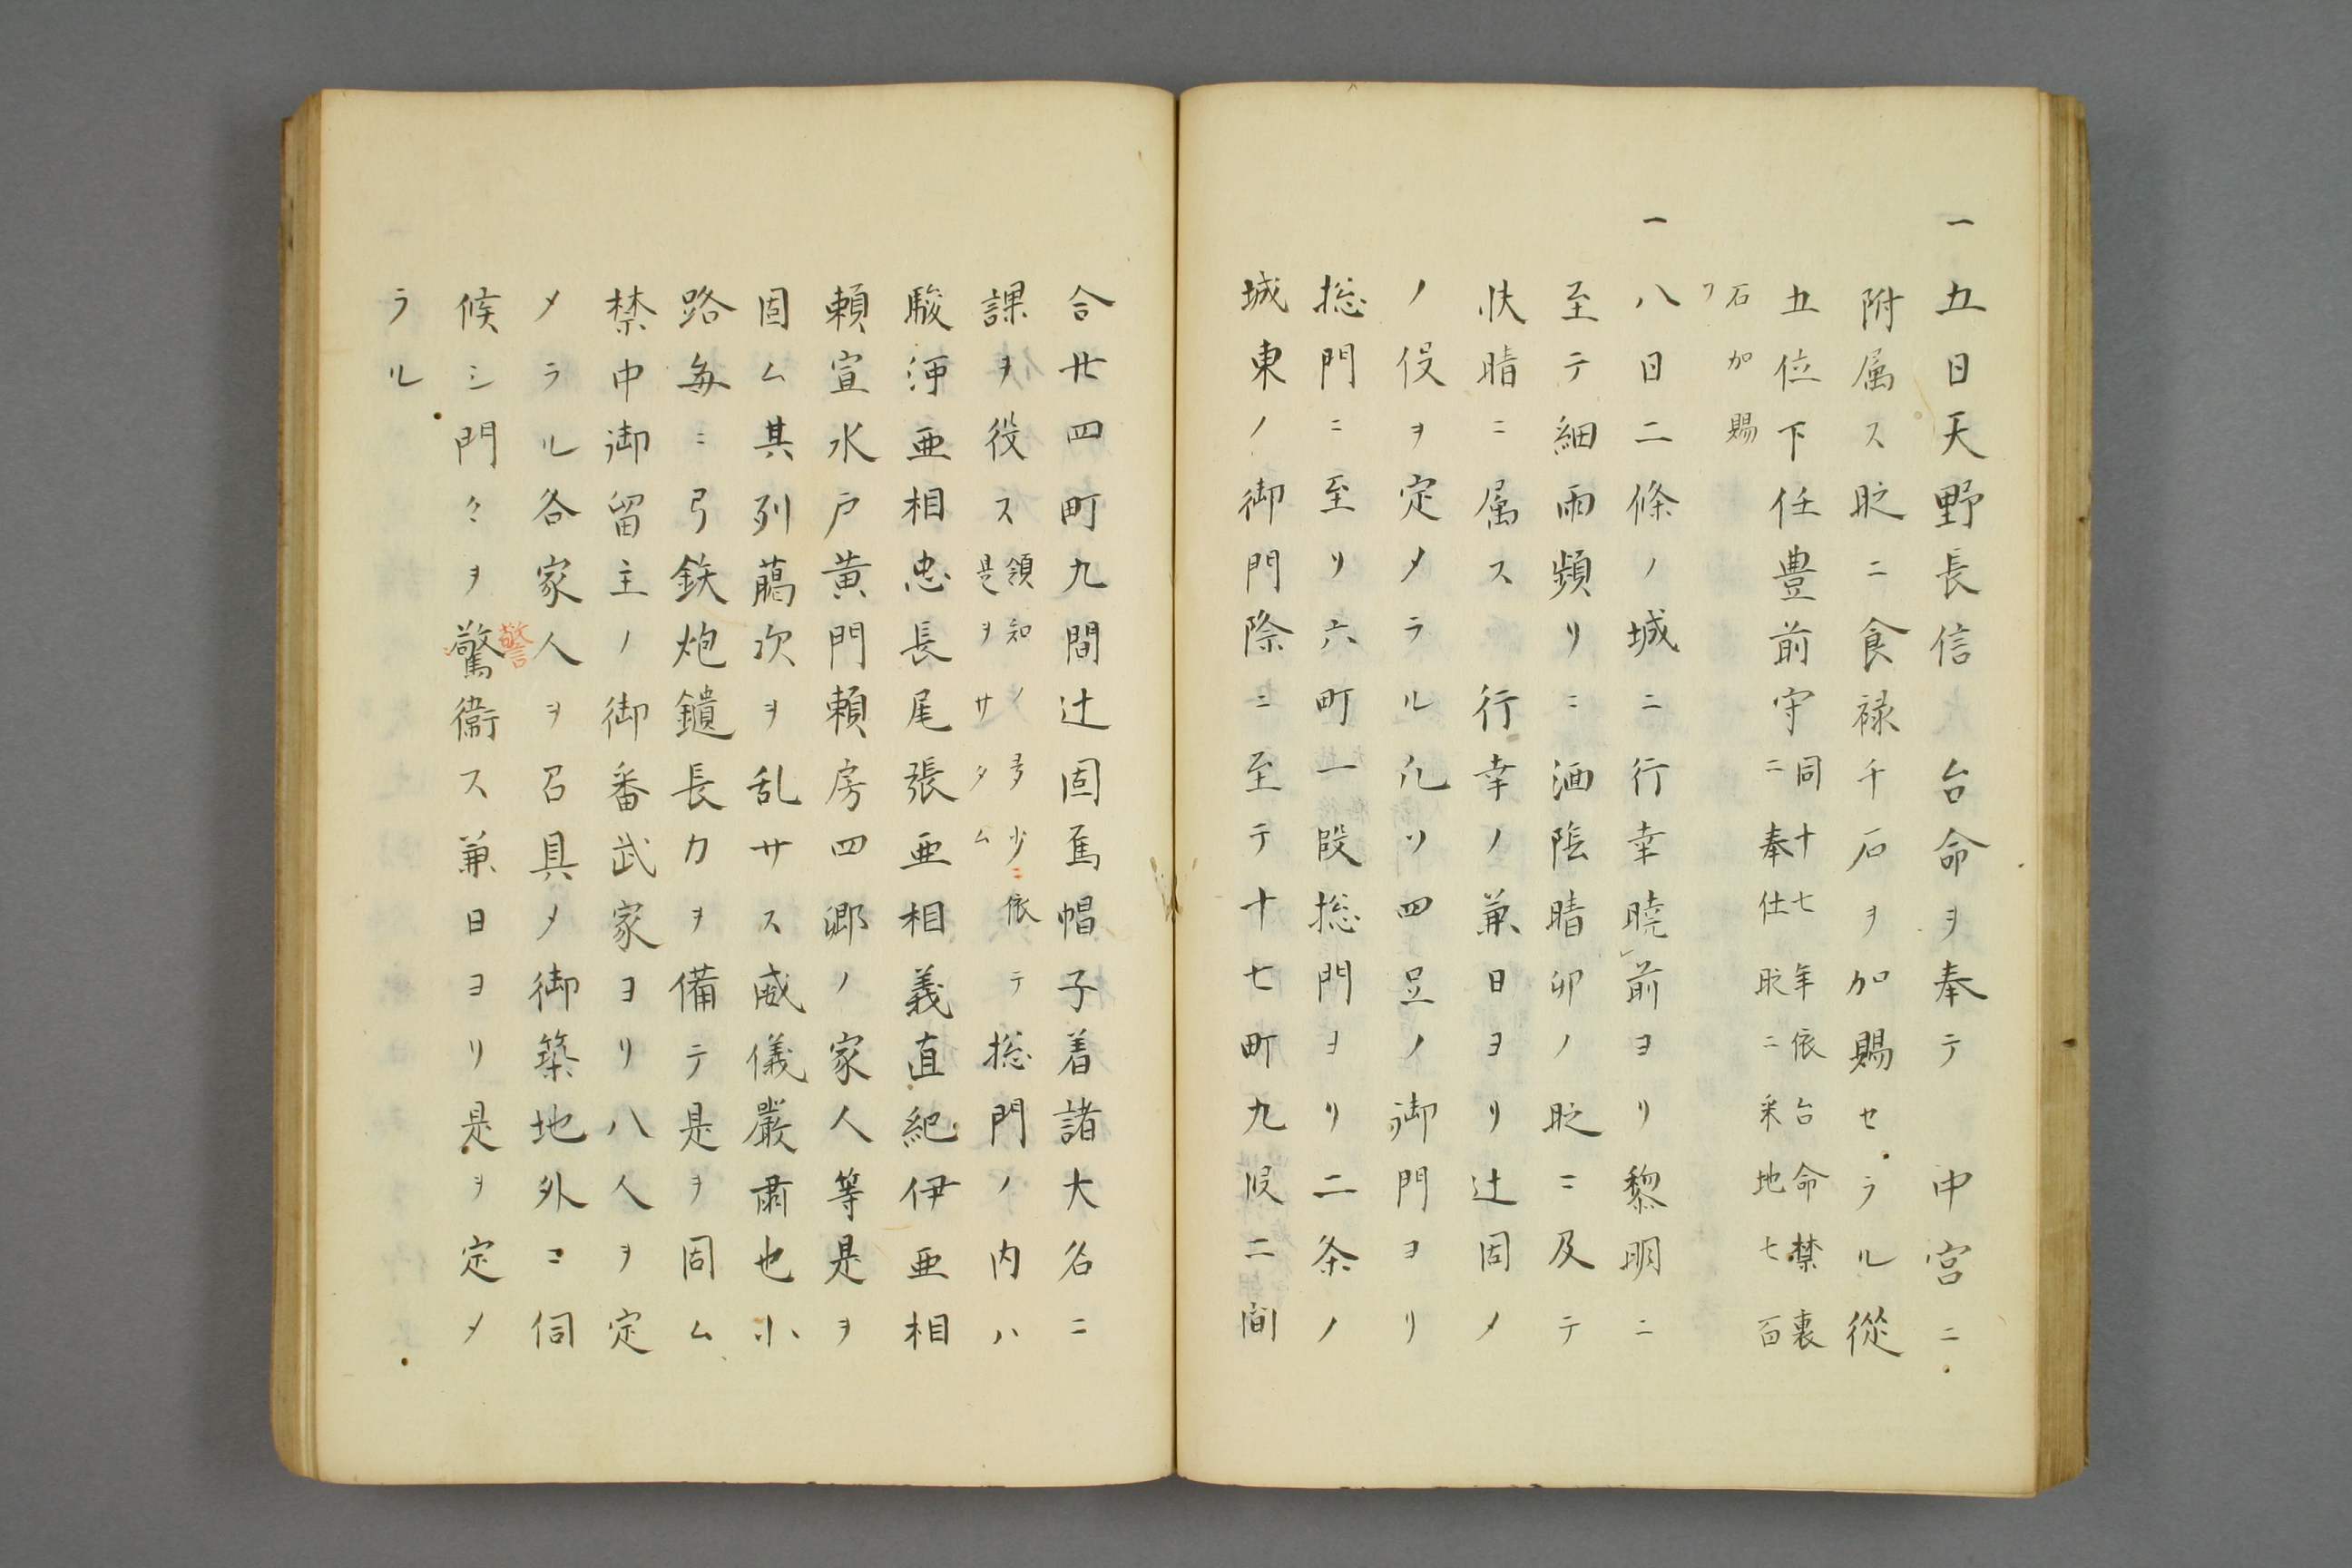 一五日天野長信　台命ヲ奉テ　中宮ニ
附属ス貶ニ食禄千石ヲ加賜セラル從
五位下任豊前守同十七年依台命禁裏
ニ奉仕貶ニ釆地七百
石加賜
ワ
一八日二條ノ城ニ行幸暁前ヨリ黎明ニ
至テ細雨頻リニ洒陰晴卯ノ貶ニ及テ
快晴ニ属ス　行幸ノ兼日ヨリ辻固メ
ノ役ヲ定メラル凢ソ四足ノ御門ヨリ
捴門ニ至リ六町一段捴門ヨリ二条ノ
城東ノ御門際ニ至テ十七町九段二間
合廿四町九間辻固烏帽子着諸大名ニ
課ヲ役ス領知ノ多少ニ依テ
是ヲサタム
捴門ノ内ハ
駿河亜相忠長尾張亜相義直紀伊亜相
頼宣水戸黄門頼房四郷ノ家人等是ヲ
固ム其列﨟次ヲ乱サス威儀嚴肅也小
路毎ニ弓鉄炮鑓長刀ヲ備テ是ヲ固ム
禁中御留主ノ御番武家ヨリ八人ヲ定
メラル各家人ヲ召具メ御築地外ニ伺
候シ門々ヲ驚衞ス兼日ヨリ是ヲ定メ
警
ラル